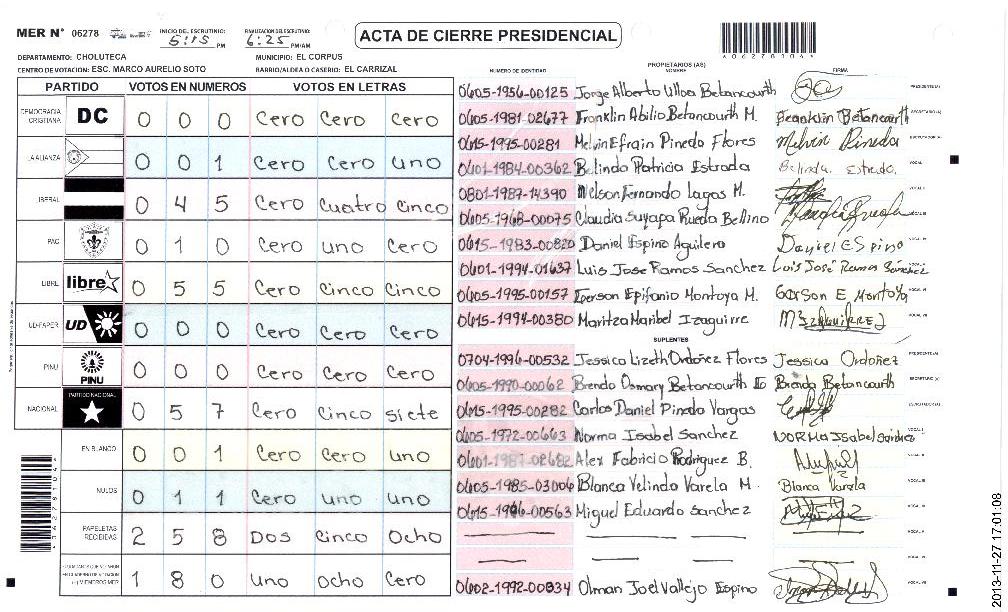 MER N° 06278 INICIO DEL ESCRUTINIO: 5:15 PM FINALIZACION DEL ESCRUTINIO: 6:25 PM/AM
ACTA DE CIERRE PRESIDENCIAL
DEPARTAMENTO: CHOLUTECA MUNICIPIO: EL CORPUS
CENTRO DE VOTACION: ESC. MARCO AURELIO SOTO BARRIO/ALDEA O CASERIO: EL CARRIZAL
PARTIDO VOTOS EN NUMEROS VOTOS EN LETRAS
DEMOCRACIA CRISTIANA DC 0 0 0 Cero Cero Cero
LA ALIANZA 0 0 1 Cero Cero uno
LIBERAL 0 4 5 Cero Cuatro Cinco
PAC 0 1 0 Cero uno Cero
LIBRE libre 0 5 5 Cero Cinco Cinco
UD-FAPER UD 0 0 0 Cero Cero Cero
PINU PINU 0 0 0 Cero Cero Cero
NACIONAL PARTIDO NACIONAL 0 5 7 Cero Cinco siete
EN BLANCO 0 0 1 Cero Cero uno
NULOS 0 1 1 Cero uno uno
PAPELETAS RECIBIDAS 2 5 8 Dos Cinco Ocho
1 8 0 uno ocho Cero
NUMERO DE IDENTIDAD PROPIETARIOS (AS) NOMBRE FIRMA
0605-1956-00125 Jorge Alberto Ulloa Betancourth PRESIDENTE(A)
0605-1981-02677 Franklin Abilio Betancourth M. Franklin Betancourth SECRETARIO(A)
0615-1995-00281 Melvin Efrain Pineda Flores Melvin Pineda ESCRUTADOR(A)
0601-1984-00362 Belinda Patricia Estrada Belinda Estrada. VOCAL I
0801-1987-14390 Nelson Fernando Lagos M. VOCAL II
0605-1968-00075 Claudia Suyapa Rueda Bellino VOCAL III
0615-1983-00820 Daniel Espino Aguilera Daniel Espino VOCAL IV
0601-1994-01637 Luis Jose Ramos Sanchez Luis José Ramos Sánchez VOCAL V
0605-1995-00157 Gerson Epifanio Montoya M. Gerson E Montoya VOCAL VI
0615-1994-00380 Maritza Maribel Izaguirre VOCAL VII
SUPLENTES
0704-1996-00532 Jessica Lizeth Ordoñez Flores Jessica Ordoñez PRESIDENTE(A)
0605-1990-00062 Brenda Osmary Betancourth Brenda Betancourth SECRETARIO(A)
0615-1995-00282 Carlos Daniel Pineda Vargas ESCRUTADOR(A)
0605-1972-00663 Norma Isabel Sanchez Norma Isabel Sánchez VOCAL I
0601-1987-02682 Alex Fabricio Rodriguez B. VOCAL II
0605-1985-03006 Blanca Velinda Varela M. Blanca Varela VOCAL III
0615-1966-00563 Miguel Eduardo Sanchez VOCAL IV
VOCAL V
VOCAL VI
0602-1992-00834 Olman Joel Vallejo Espino VOCAL VII
*06278104*
2013-11-27 17:01:08